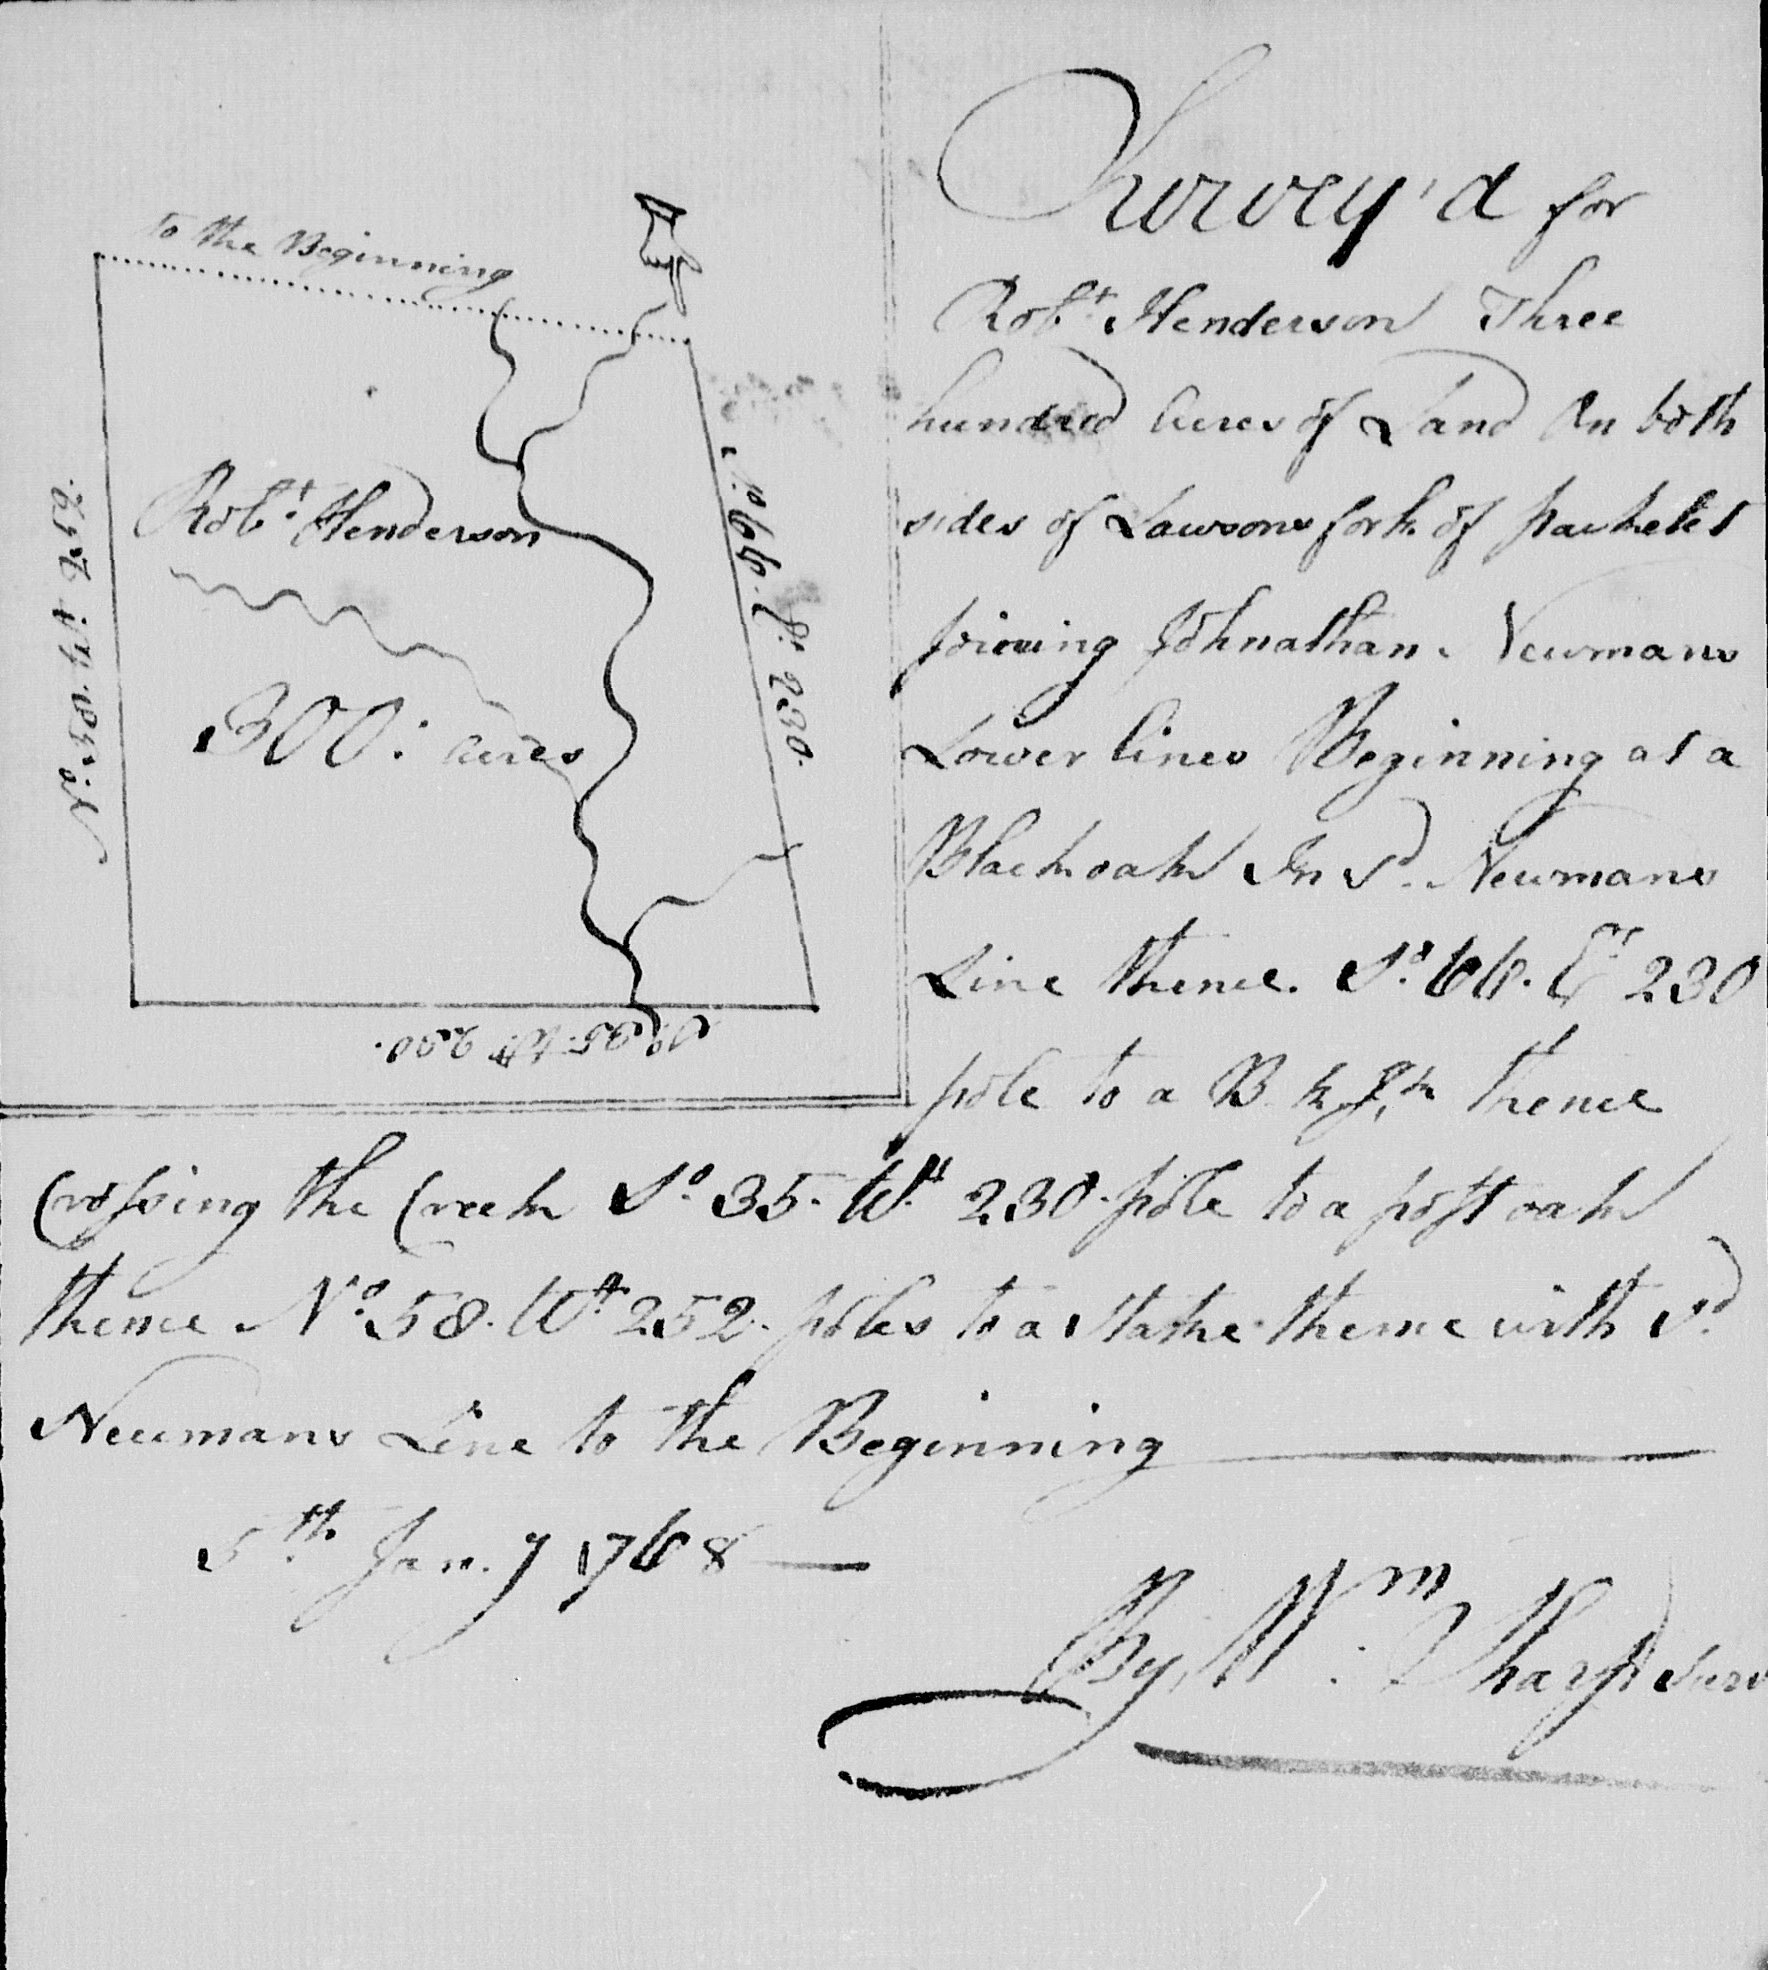 to the Beginning
Robt. Henderson
300: acres
So. 66. Et. 230.
So. 35. Wt. 230.
No. 58. Wt. 252.
Survey'd for
Robt. Henderson Three
hundred acres of Land On both
sides of Lawsons fork of packelet
joioning Johnathan Newmans
Lower lines Beginning at a
Blackoak In sd. Newmans
Line thence. So. 66. Et 230
pole to a B thence
Crossing the Creek So. 35. Wt. 230 pole to a post oak
thence No. 58. Wt. 252. poles to a stake thence with sd.
Newmans Line to the Beginning
5th Jan.y 1768
By, Wm. Sharp Surv